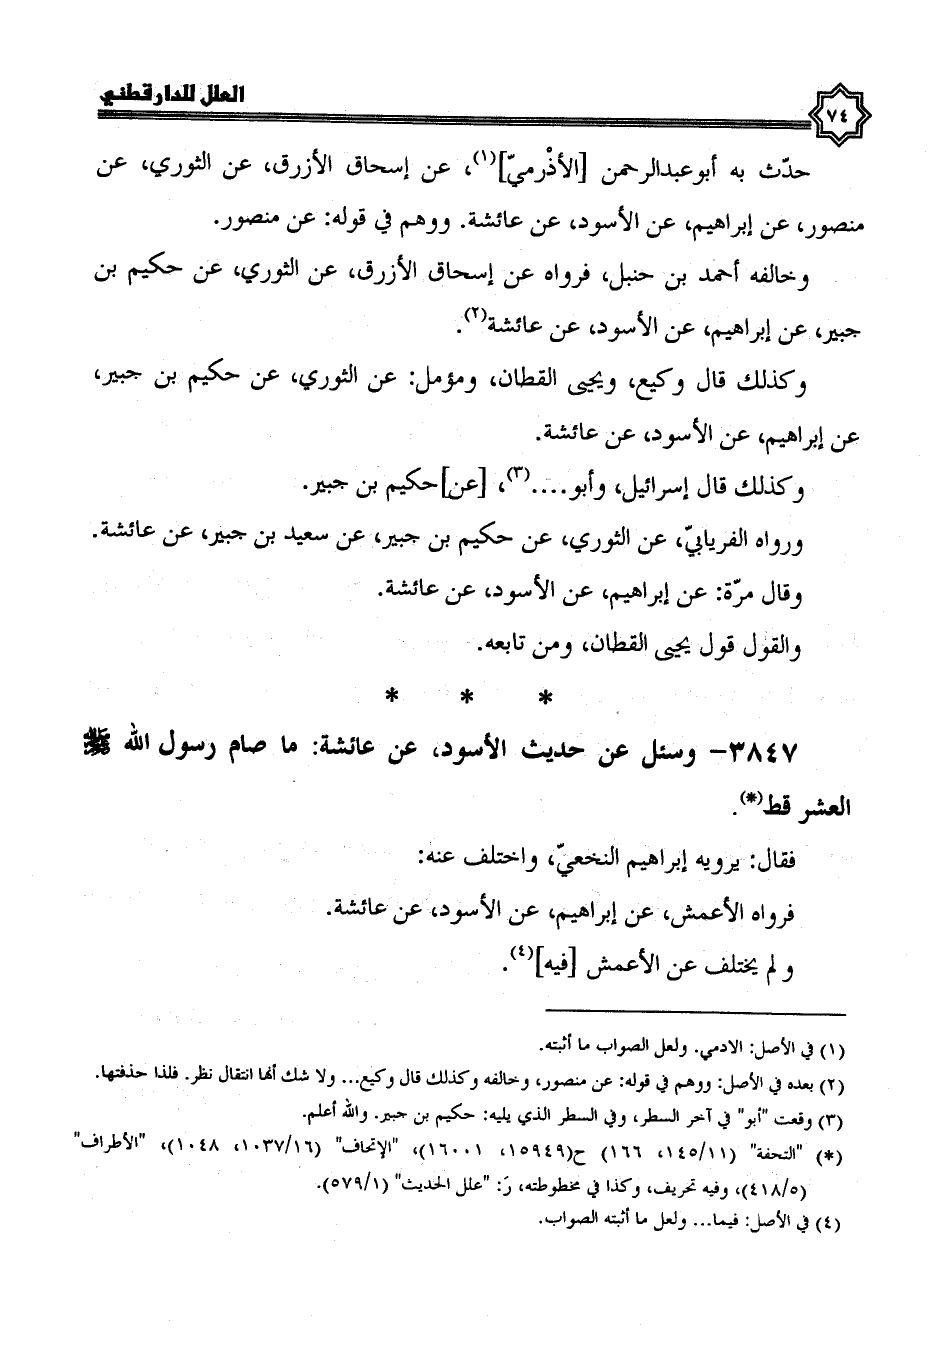 العلل للدارقطني
٧٤
حدّث به أبوعبدالرحمن [الأذْرميّ](١)، عن إسحاق الأزرق، عن الثوري، عن
منصور، عن إبراهيم، عن الأسود، عن عائشة. ووهم في قوله: عن منصور.
وخالفه أحمد بن حنبل، فرواه عن إسحاق الأزرق، عن الثوري، عن حكيم بن
جبير، عن إبراهيم، عن الأسود، عن عائشة(٢).
وكذلك قال وكيع، ويحيى القطان، ومؤمل: عن الثوري، عن حكيم بن جبير،
عن إبراهيم، عن الأسود، عن عائشة.
وكذلك قال إسرائيل، وأبو....(٣)، [عن] حكيم بن جبير.
ورواه الفريابيّ، عن الثوري، عن حكيم بن جبير، عن سعيد بن جبير، عن عائشة.
وقال مرّة: عن إبراهيم، عن الأسود، عن عائشة.
والقول قول يحيى القطان، ومن تابعه.
* * *
٣٨٤٧– وسئل عن حديث الأسود، عن عائشة: ما صام رسول الله ﷺ
العشر قط(*).
فقال: يرويه إبراهيم النخعيّ، واختلف عنه:
فرواه الأعمش، عن إبراهيم، عن الأسود، عن عائشة.
ولم يختلف عن الأعمش [فيه](٤).
(١) في الأصل: الادمي. ولعل الصواب ما أثبته.
(٢) بعده في الأصل: ووهم في قوله: عن منصور، وخالفه وكذلك قال وكيع... ولا شك أنها انتقال نظر. فلذا حذفتها.
(٣) وقعت "أبو" في آخر السطر، وفي السطر الذي يليه: حكيم بن جبير. والله أعلم.
(*) "التحفة" (١٤٥/١١، ١٦٦) ح(١٥٩٤٩، ١٦٠٠١)، "الإتحاف" (١٠٣٧/١٦، ١٠٤٨)، "الأطراف"
(٤١٨/٥)، وفيه تحريف، وكذا في مخطوطته، رَ: "علل الحديث" (٥٧٩/١).
(٤) في الأصل: فيما... ولعل ما أثبته الصواب.